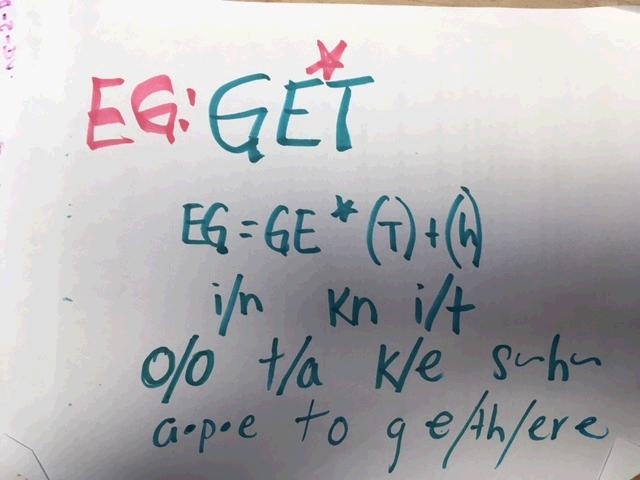 EG: GE*T
EG = GE * (T) + (h)
i/n kn i/t
o/o t/a k/e s~h~
a.p.e to g e/th/ere